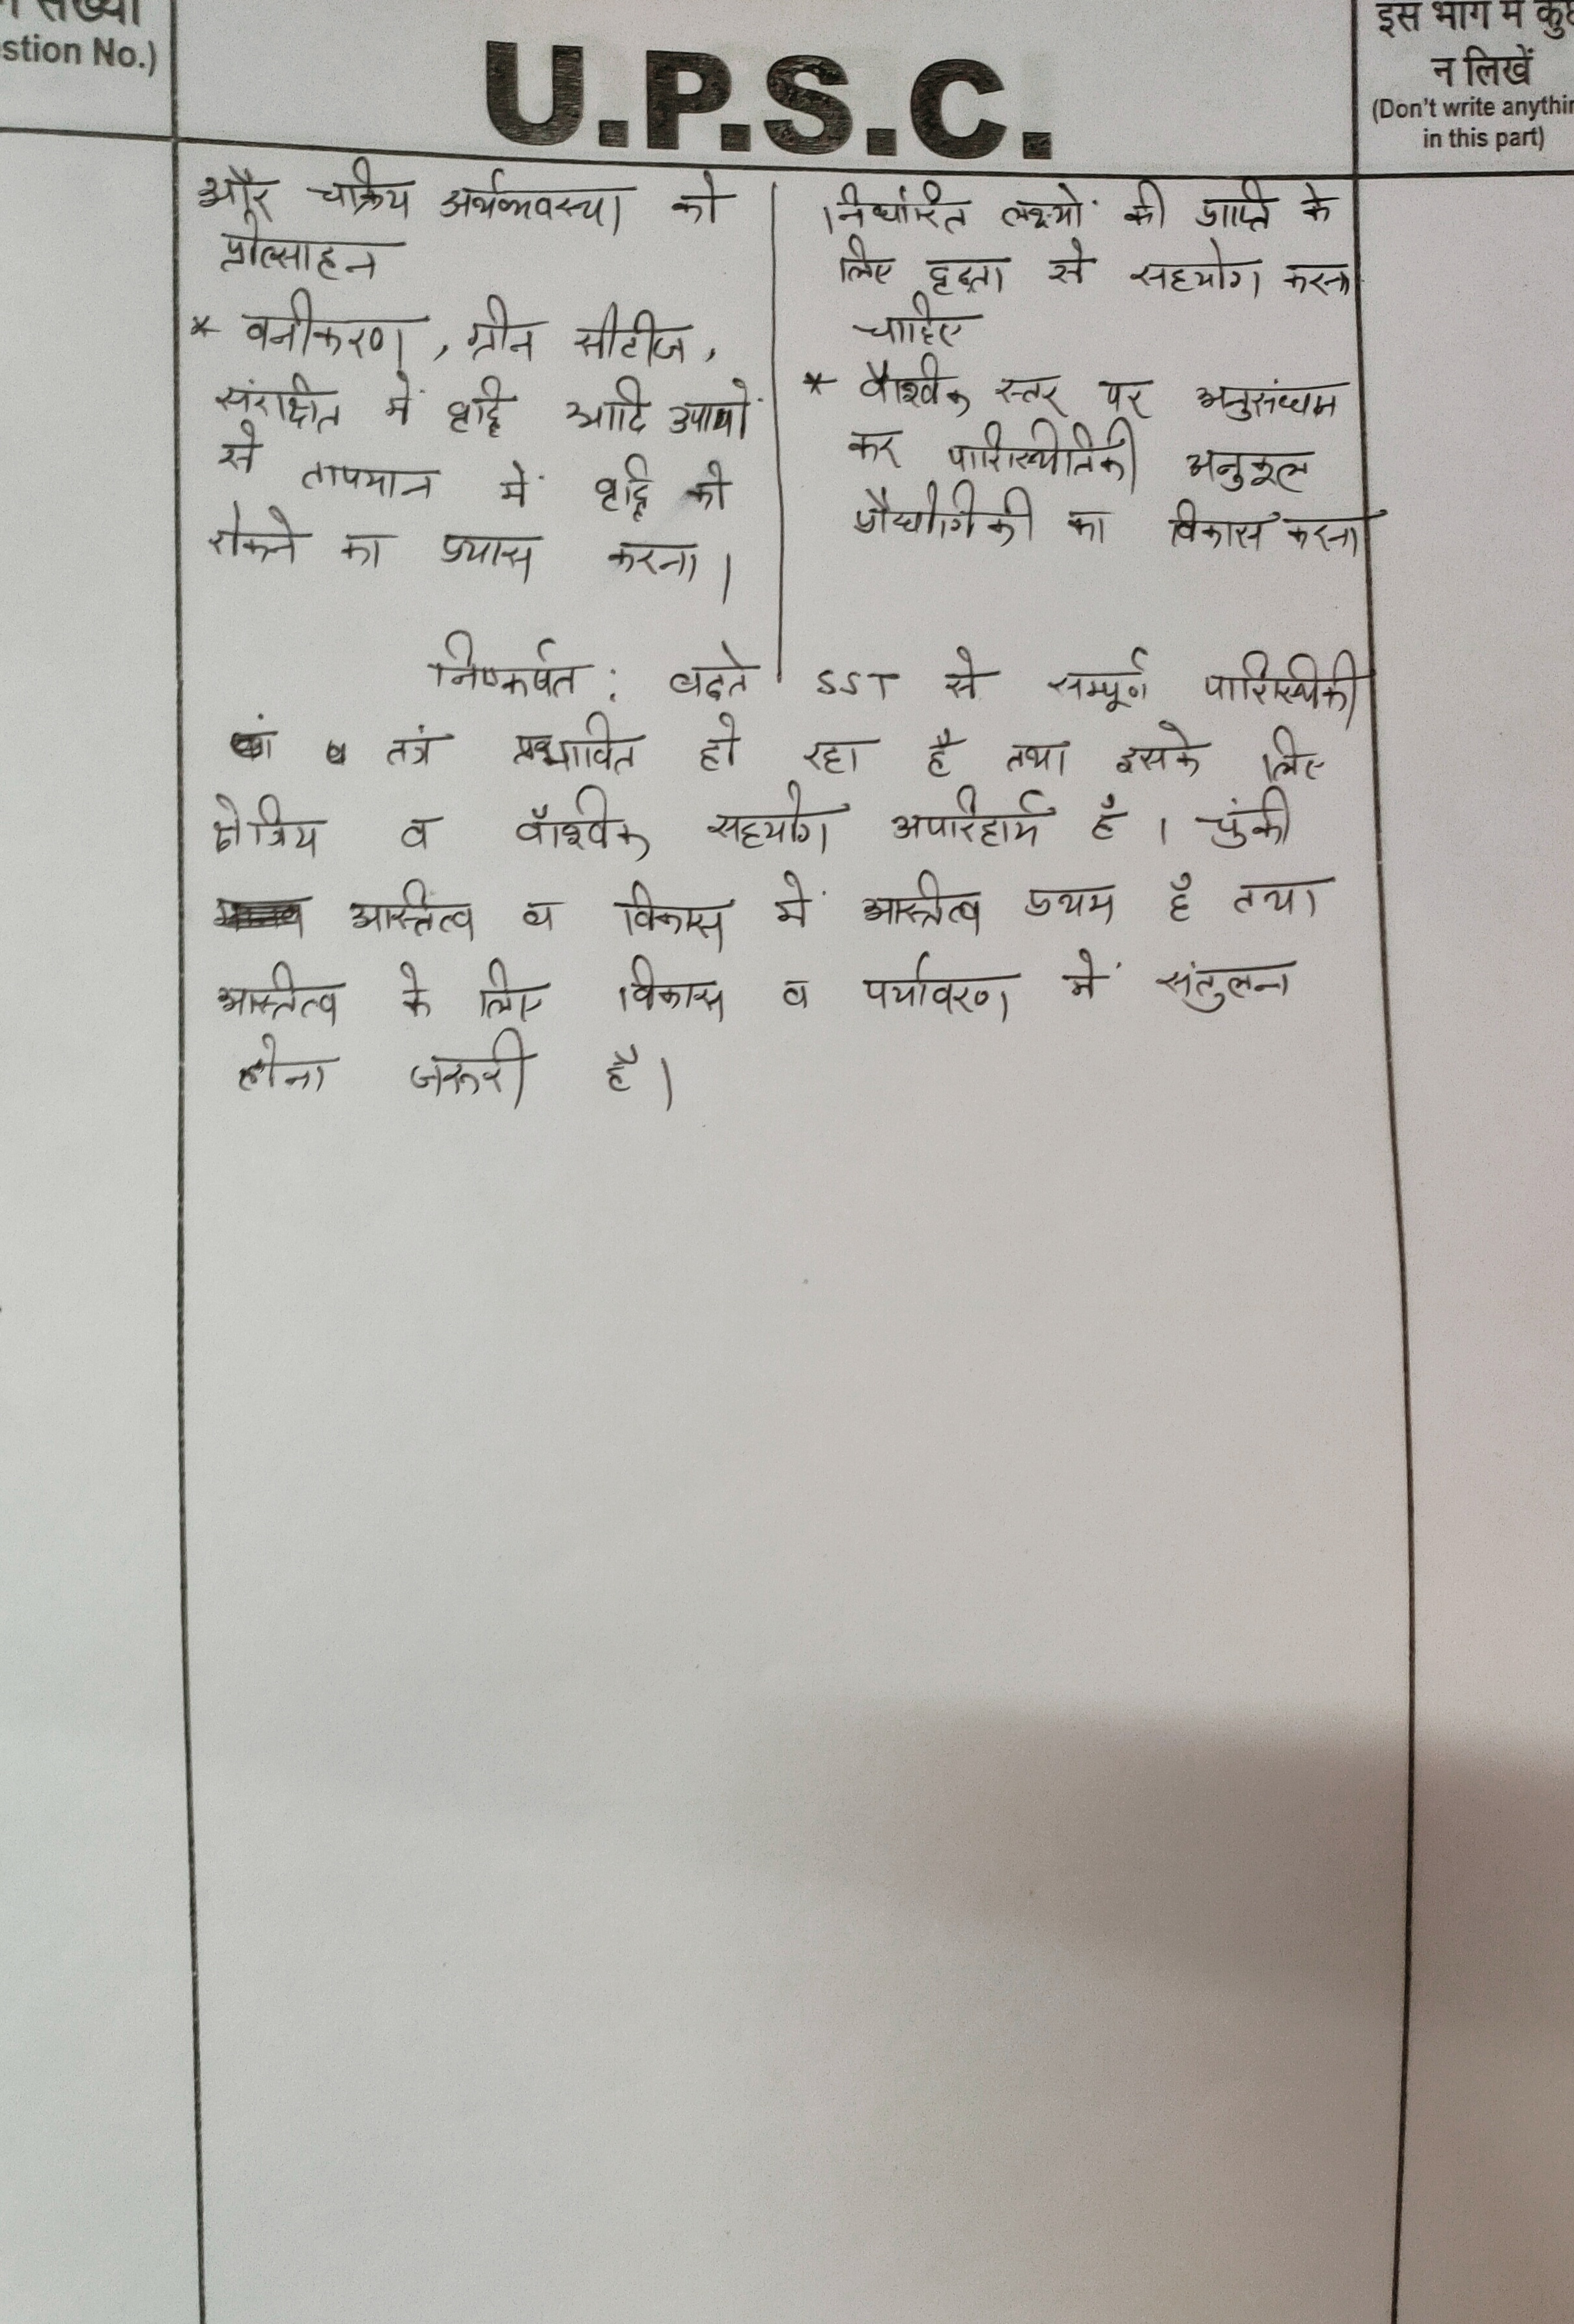 संख्या
stion No.)
U.P.S.C.
इस भाग में कुछ
न लिखें
(Don't write anythin
in this part)
और चक्रिय अर्थव्यवस्था को
प्रोत्साहन
* वनीकरण, ग्रीन सीटीज,
संरक्षित में वृद्धि आदि उपायों
से तापमान में वृद्धि को
रोकने का प्रयास करना।
निर्धारित लक्ष्यों की प्राप्ति के
लिए दृढ़ता से सहयोग करना
चाहिए
* वैश्वीक स्तर पर अनुसंधान
कर पारिस्थीतिकी अनुकूल
प्रौद्योगिकी का विकास करना
निष्कर्षत: बढ़ते SST से सम्पूर्ण पारिस्थिकी
व तत्रं प्रभावित हो रहा है तथा इसके लिए
क्षेत्रिय व वैश्वीक सहयोग अपरिहार्य है। चुंकी
अस्तित्व व विकास में अस्तित्व प्रथम है तथा
अस्तित्व के लिए विकास व पर्यावरण में संतुलन
होना जरूरी है।